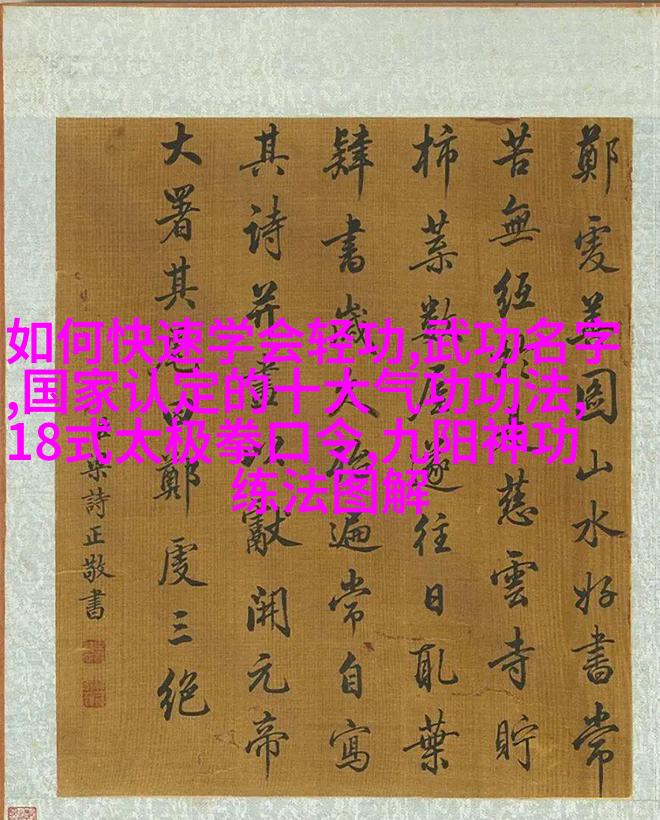 如何快速学会轻功,武功名字
,国家认定的十大气功功法,
18式太极拳口令,九阳神功
练法图解
鄭虔善圖山水好書常
苦無紙於慈雲寺貯
柿葉數屋遂往日取葉
肄書歲久殆遍常自寫
其詩并畫以獻開元帝
大署其尾曰鄭虔三絕
梁詩正敬書